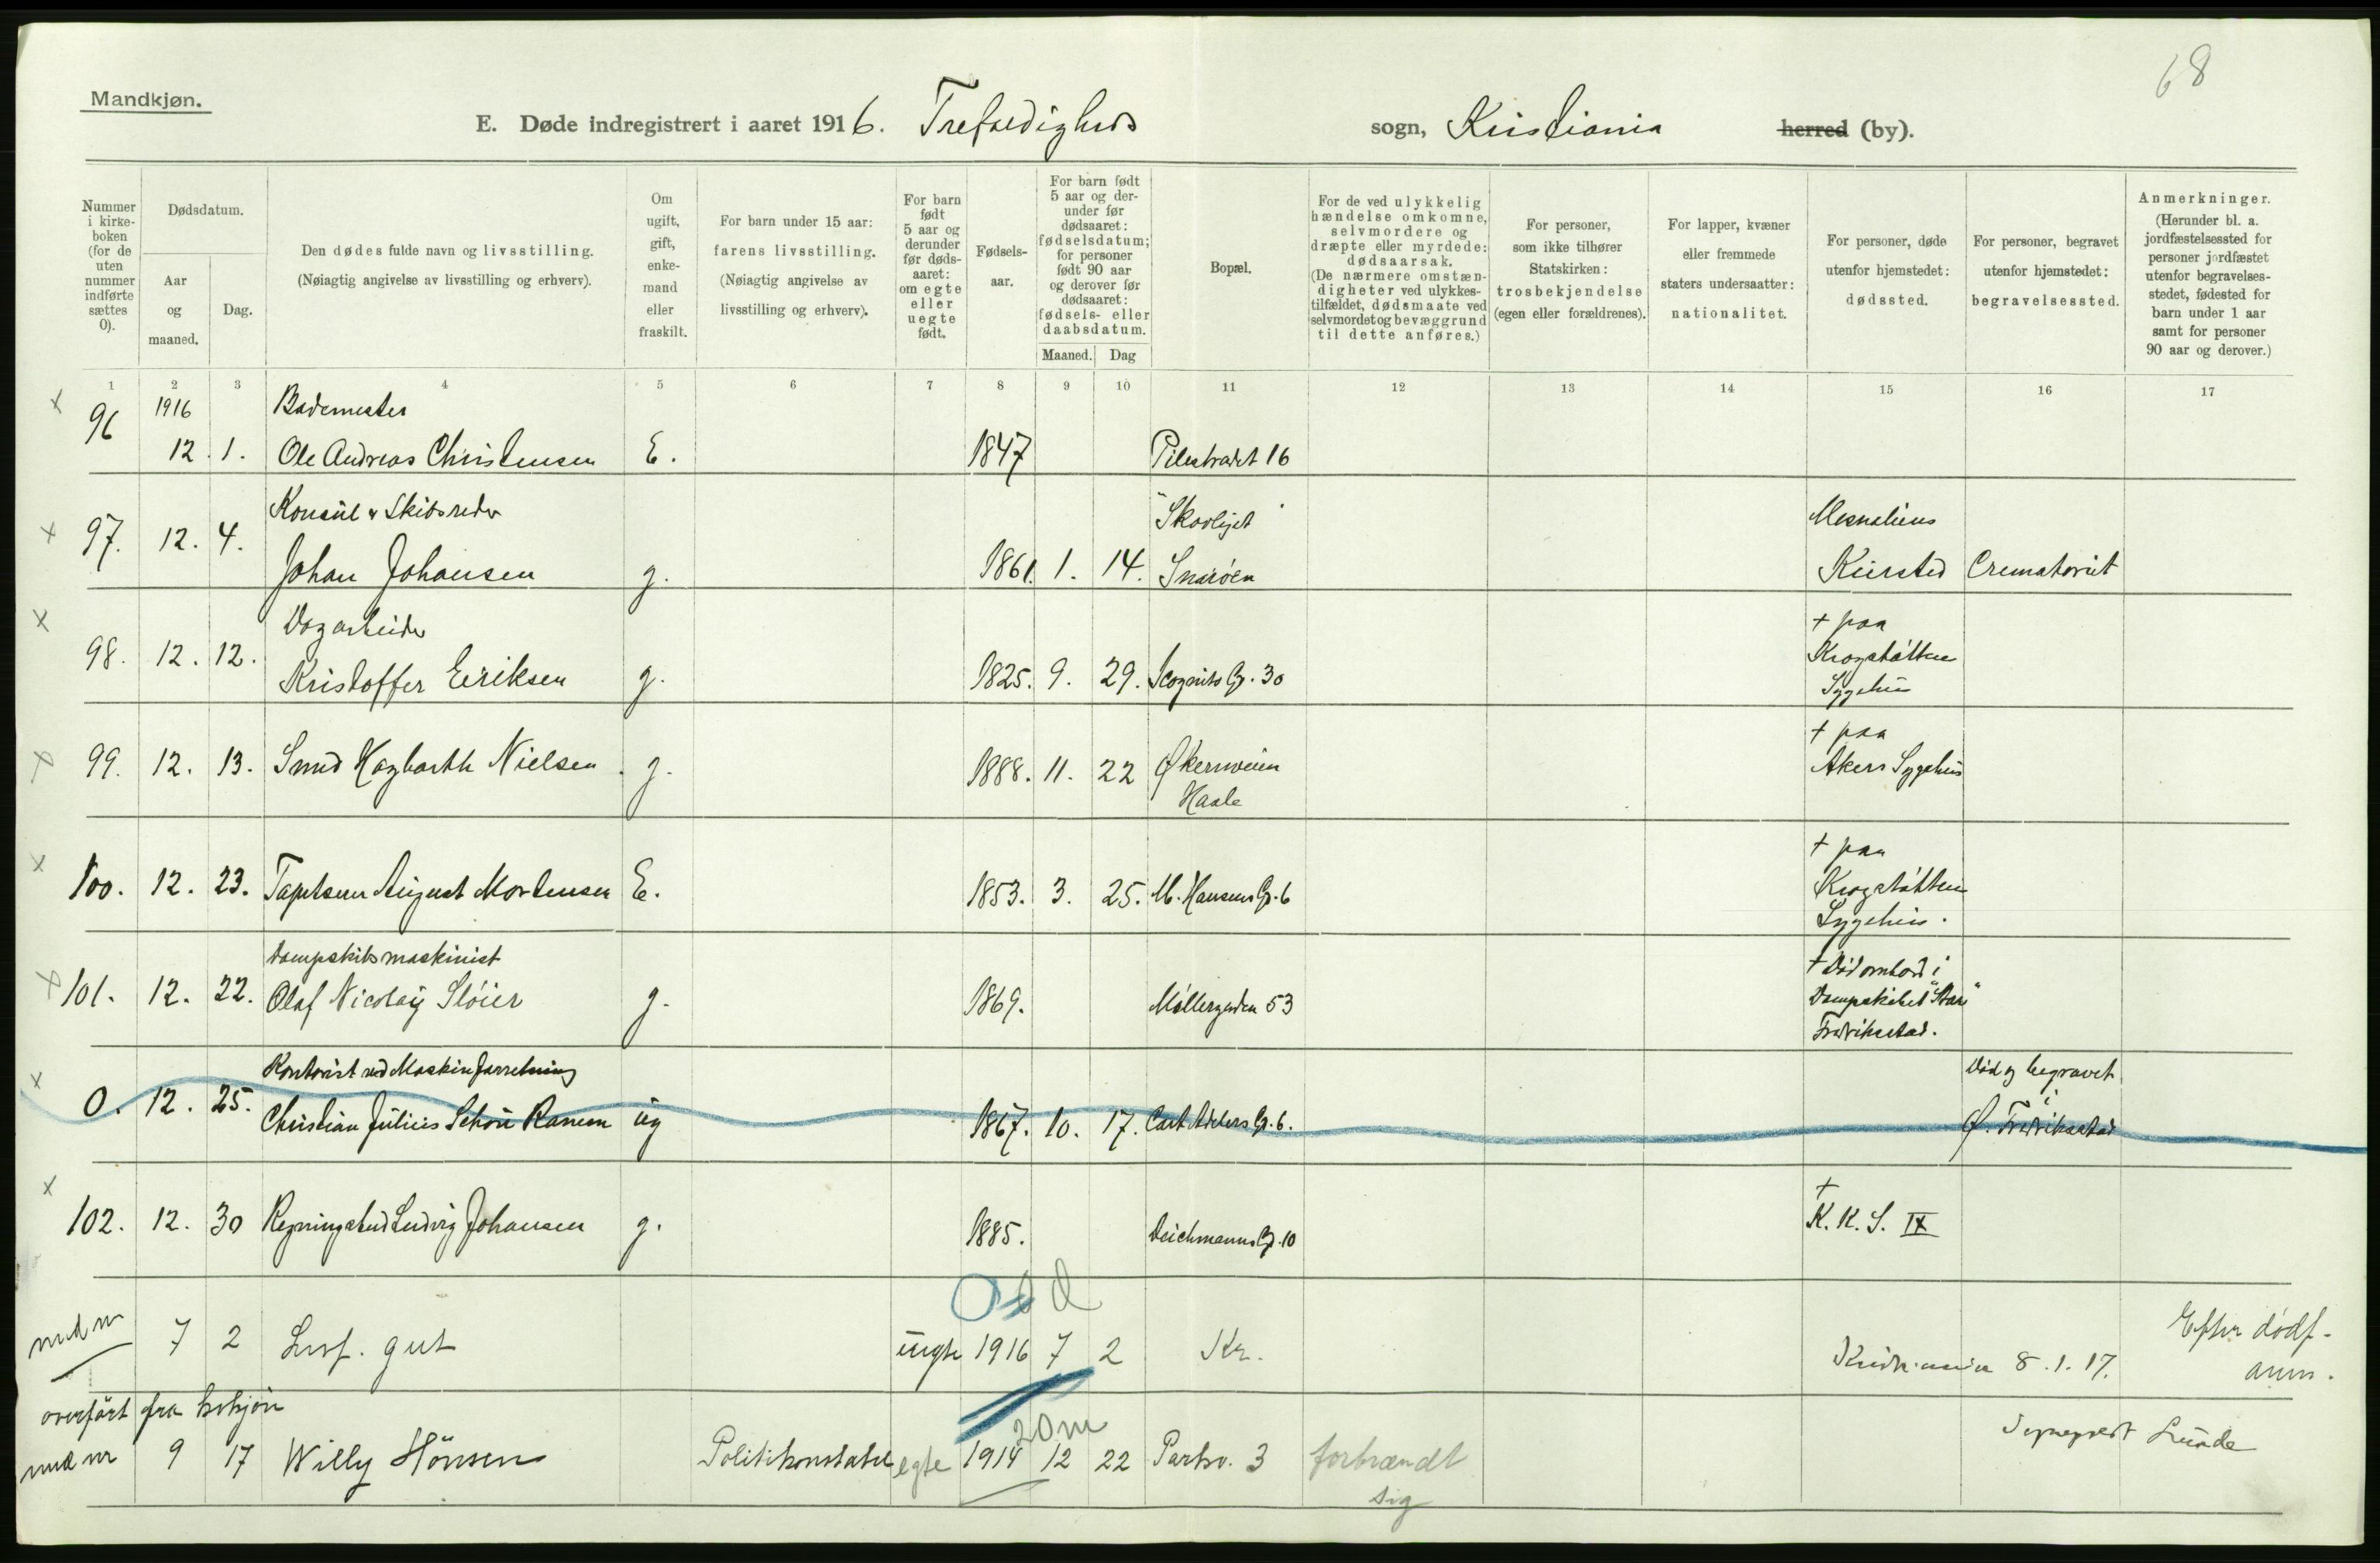 68
Mandkjøn.
E. Døde indregistrert i aaret 1916. Trefoldigheds sogn, Kristiania herred (by).
Nummer i kirke-boken (for de uten nummer indførte sættes 0).
Dødsdatum.
Aar og maaned.
Dag.
Den dødes fulde navn og livsstilling.
(Nøiagtig angivelse av livsstilling og erhverv).
Om ugift, gift, enke-mand eller fraskilt.
For barn under 15 aar: farens livsstilling.
(Nøiagtig angivelse av livsstilling og erhverv).
For barn født 5 aar og derunder før døds-aaret: om egte eller uegte født.
Fødsels-aar.
For barn født 5 aar og der-under før dødsaaret: fødselsdatum; for personer født 90 aar og derover før dødsaaret: fødsels- eller daabsdatum.
Maaned. Dag
Bopæl.
For de ved ulykkelig hændelse omkomne, selvmordere og dræpte eller myrdede: dødsaarsak.
(De nærmere omstæn-digheter ved ulykkes-tilfældet, dødsmaate ved selvmordet og bevæggrund til dette anføres.)
For personer, som ikke tilhører Statskirken: trosbekjendelse (egen eller forældrenes).
For lapper, kvæner eller fremmede staters undersaatter: nationalitet.
For personer, døde utenfor hjemstedet: dødssted.
For personer, begravet utenfor hjemstedet: begravelsessted.
Anmerkninger.
(Herunder bl. a. jordfæstelsessted for personer jordfæstet utenfor begravelses-stedet, fødested for barn under 1 aar samt for personer 90 aar og derover.)
1 2 3 4 5 6 7 8 9 10 11 12 13 14 15 16 17
1916 Bademester
x 96 12. 1. Ole Andreas Christensen E. 1847 Pilestrædet 16
Konsul & Skibsreder "Skovlyst" Mesnaliens
x 97. 12. 4. Johan Johansen g. 1861. 1. 14. Snarøen Kursted Crematoriet
Dagarbeider + paa
x 98. 12. 12. Kristoffer Eriksen g. 1825. 9. 29. Gr. 30 Krogstøtten
Sygehus
+ paa
x 99. 12. 13. Smed Hagbarth Nielsen. g. 1888. 11. 22 Økernveien Akers Sygehus
Hasle
+ paa
x 100. 12. 23. Tapetserer August Mortensen E. 1853. 3. 25. M. Hansens Gr. 6 Krogstøtten
Sygehus.
Dampskibsmaskinist + Død ombord i
x 101. 12. 22. Olaf Nicolay Sløier g. 1869. Møllergaden 53 Dampskibet
Fredrikstad.
Kontorist ved Maskinforretning Død og begravet
x 0. 12. 25. Christian Julius Schou ug 1867. 10. 17. Carl Adelers Gr. 6. i
Ø. Fredrikstad
+
x 102. 12. 30 Ludvig Johansen g. 1885. Deichmanns Gr. 10 K. K. S. IX
0 d
uten nr 7 2 Levf. gut uegte 1916 7 2 Kr. Kristiania 8.1.17. Efter dødf-
anm.
overført fra kvkjøn
uten nr 9 17 Willy Hönsen Politikonstabel egte 1914 12 22 Parkv. 3 forbrændt
sig
20 m
Lunde